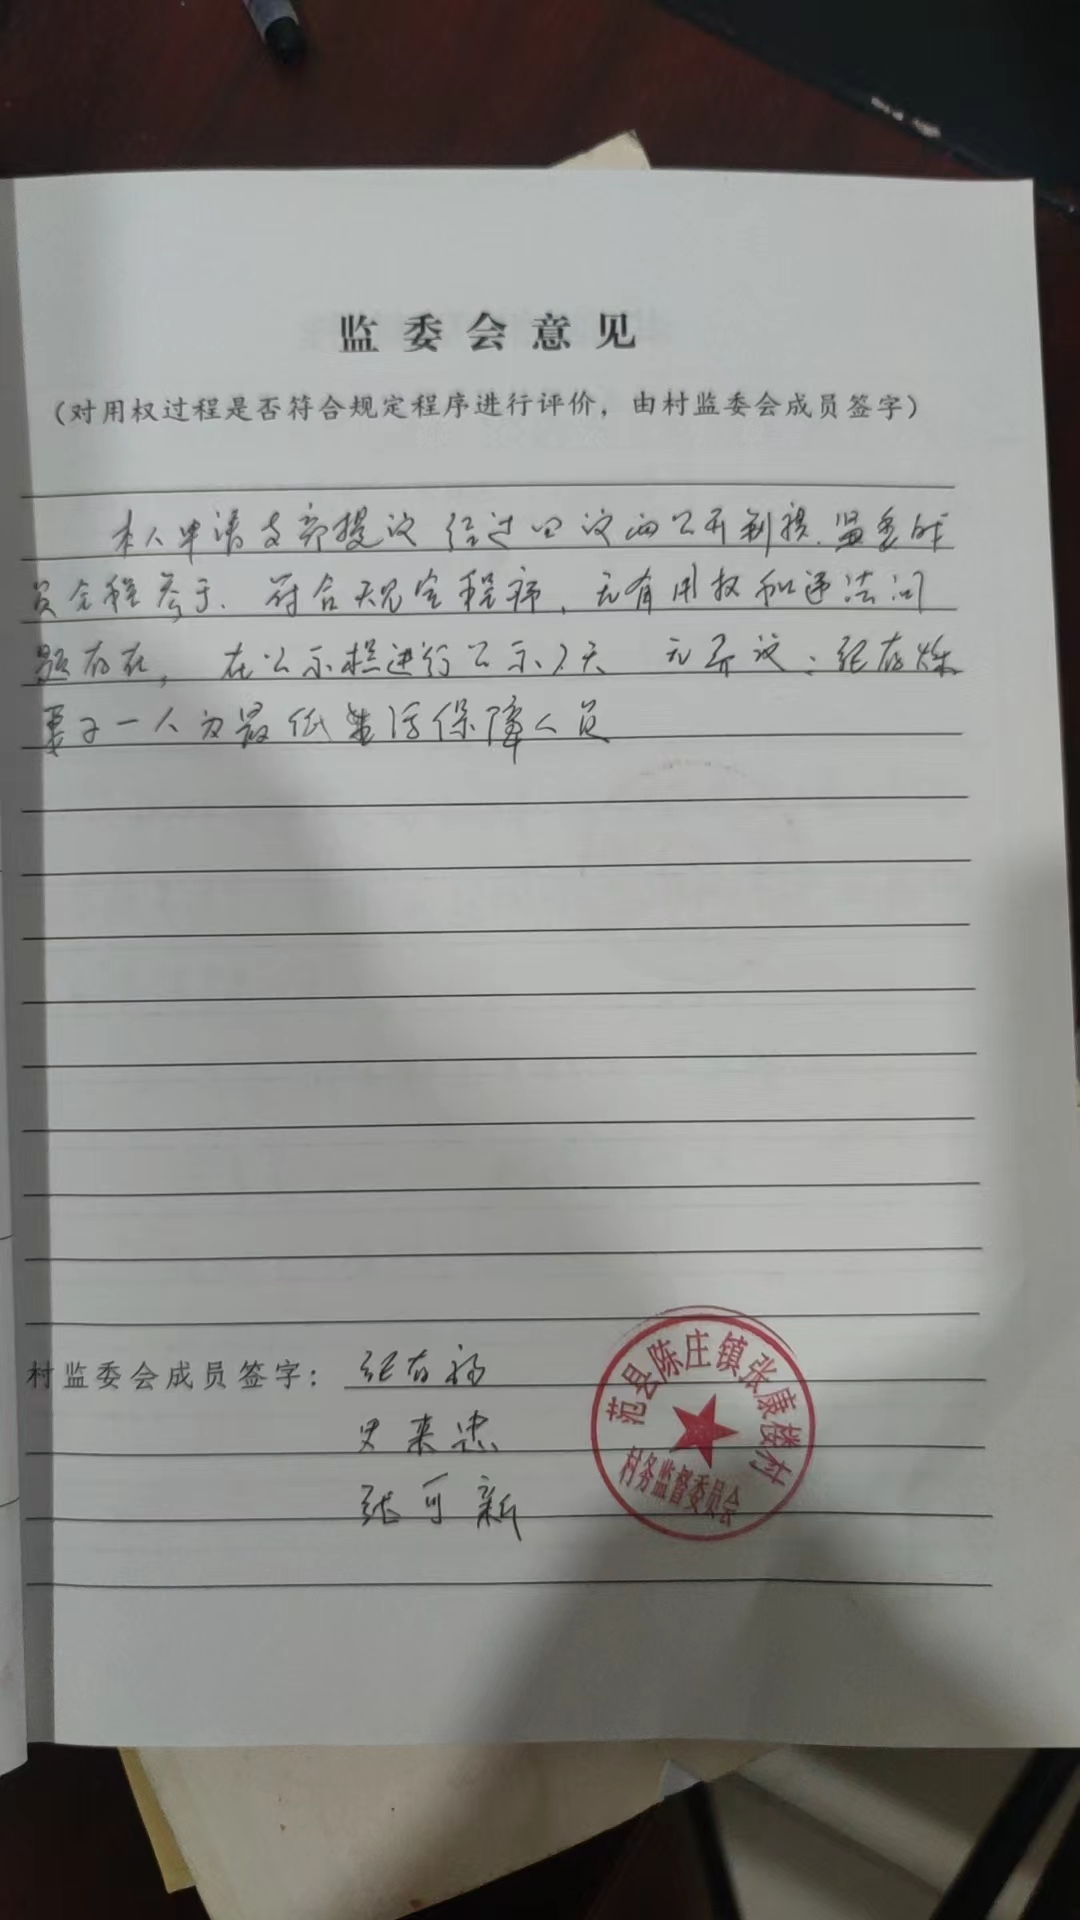 监委会意见
（对用权过程是否符合规定程序进行评价，由村监委会成员签字）
本人申请支部提议经过四议两公开制提.监委成
员全程参于.符合规定程序,无有用权和违法问
题存在,在公示栏进行公示7天 无异议:张存
妻子一人为最低生活保障人员
村监委会成员签字：张存
来忠
张可新
范县陈庄镇张康楼村
村务监督委员会